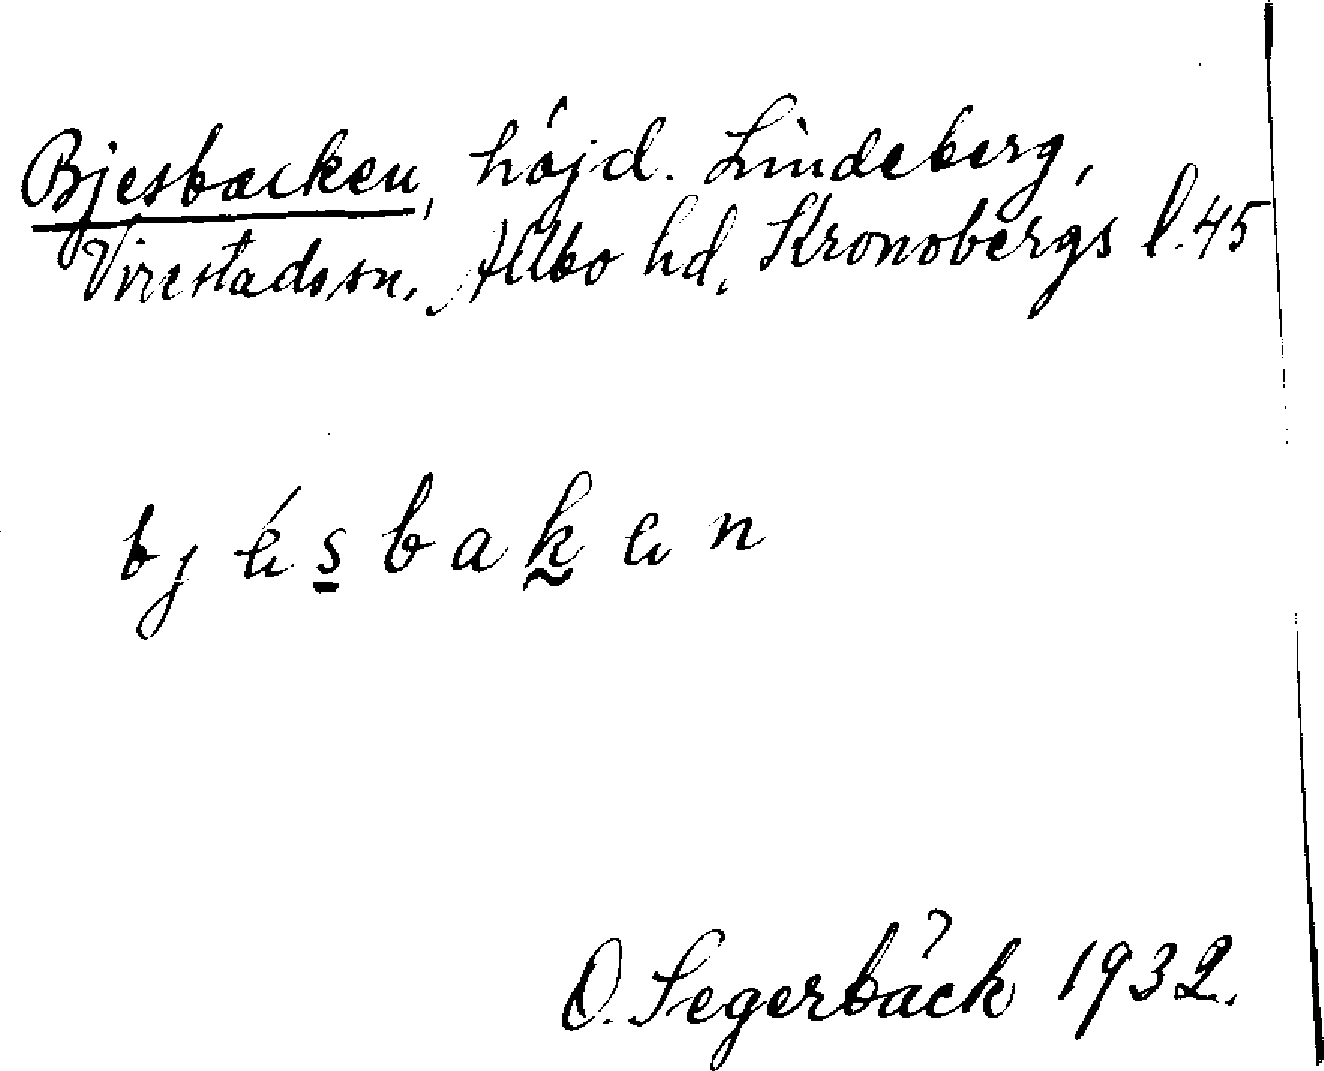 Bjesbacken, höjd. Lindeberg,
Virestads sn. Allbo hd, Kronobergs l. 45
bjésbaken
O. Segerbäck 1932.